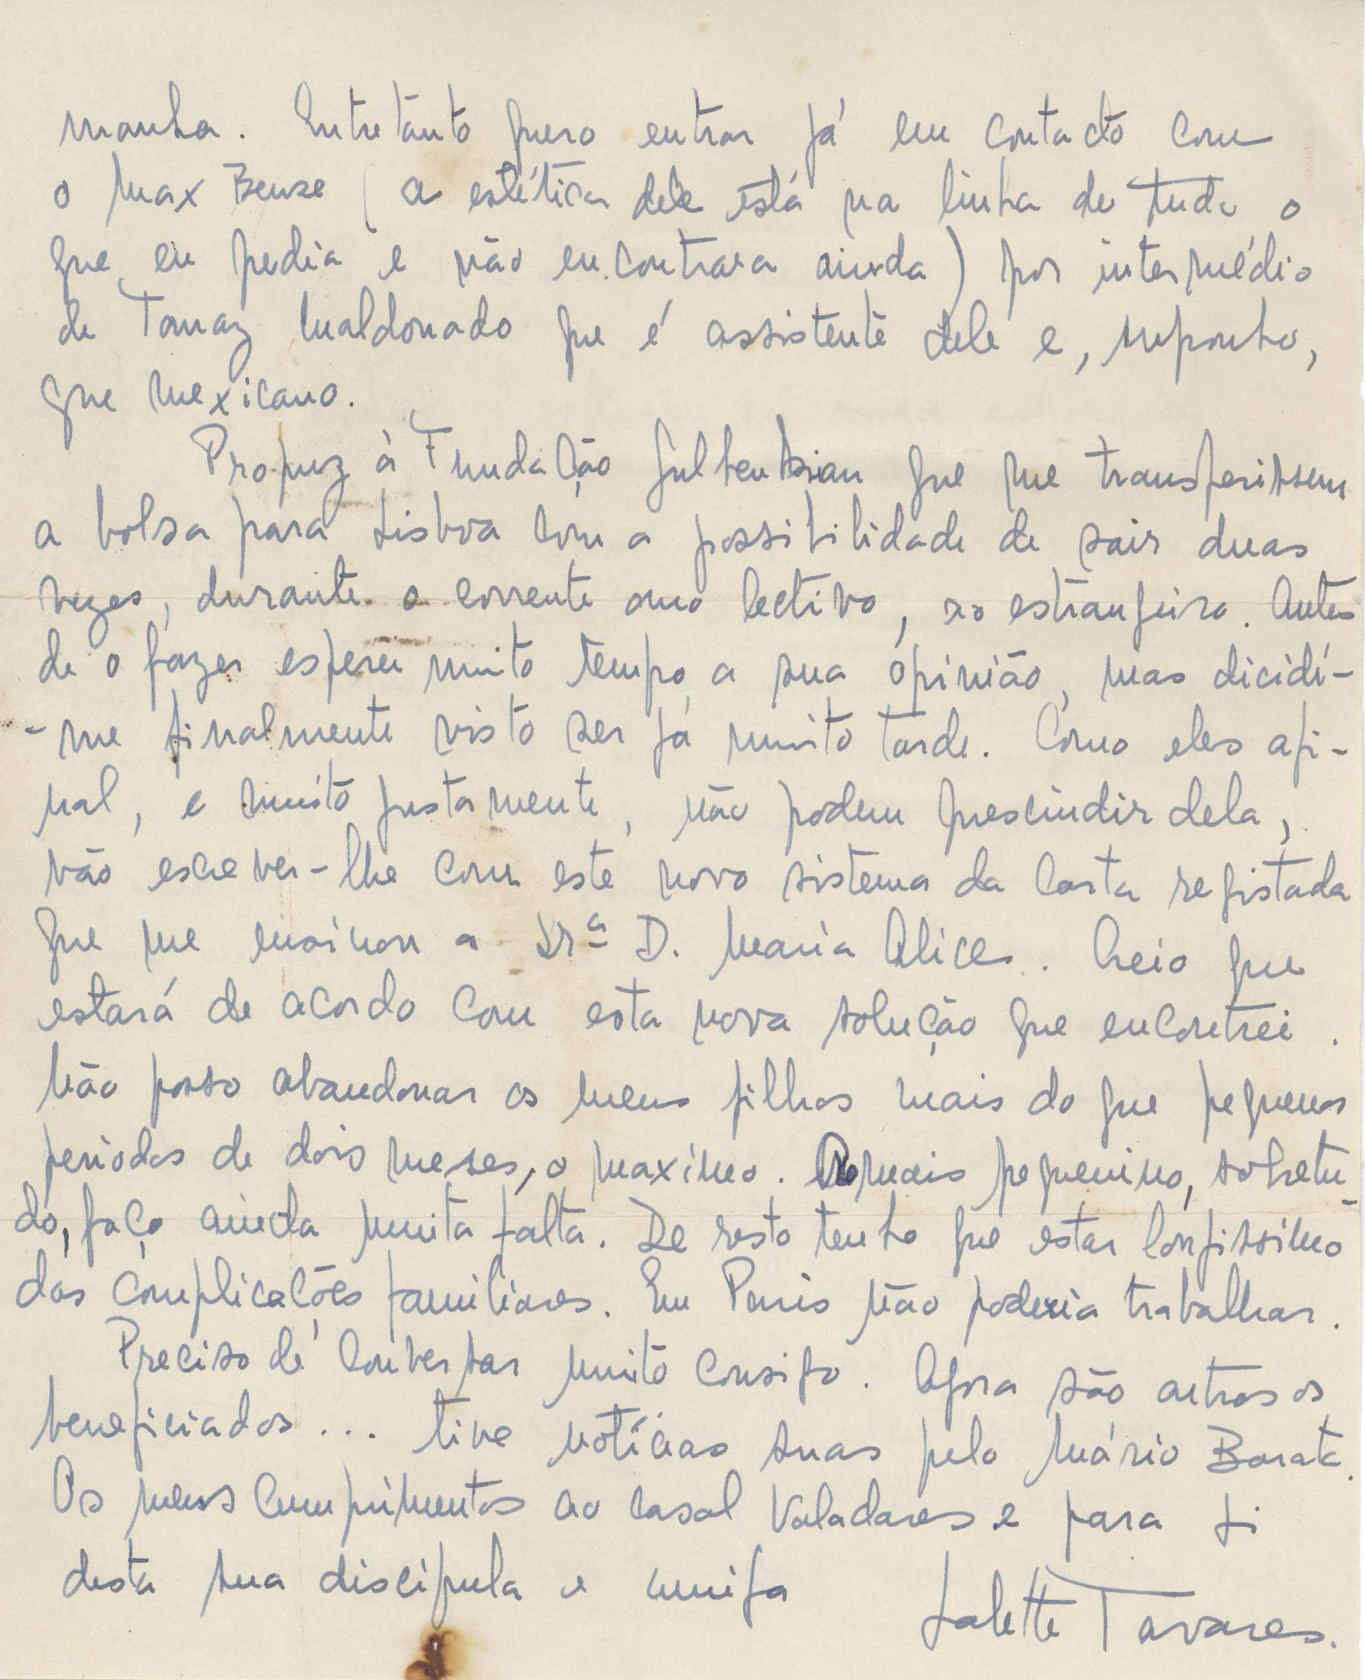 manha. Entretânto quero entrar já em contacto com
o Max Bense (a estética dele está na linha de tudo o
que eu pedia e não encontrara ainda) por intermédio
de Tomaz Maldonado que é assistente dele e, suponho,
que mexicano.
Propuz à Fundação Gulbenkian que me transferissem
a bolsa para Lisboa com a possibilidade de sair duas
vezes, durante o corrente ano lectivo, ao estrangeiro. Antes
de o fazer esperei muito tempo a sua opinião, mas dicidi-
-me finalmente visto ser já muito tarde. Como eles afi-
nal, e muito justamente, não podem prescindir dela,
vão escrever-lhe com este novo sistema da carta registada
que me ensinou a Srª D. Maria Alice. Creio que
estará de acordo com esta nova solução que encontrei.
Não posso abandonar os meus filhos mais do que pequenos
periodos de dois meses, o maxímo. Ao mais pequenino, sobretu-
do, faço ainda muita falta. De resto tenho que estar longissimo
das complicações familiares. Em Paris não poderia trabalhar.
Preciso de conversar muito consigo. Agora são outros os
beneficiados... tive notícias suas pelo Mário Barata.
Os meus cumprimentos ao casal Valadares e para si
desta sua discípula e amiga
Salette Tavares.